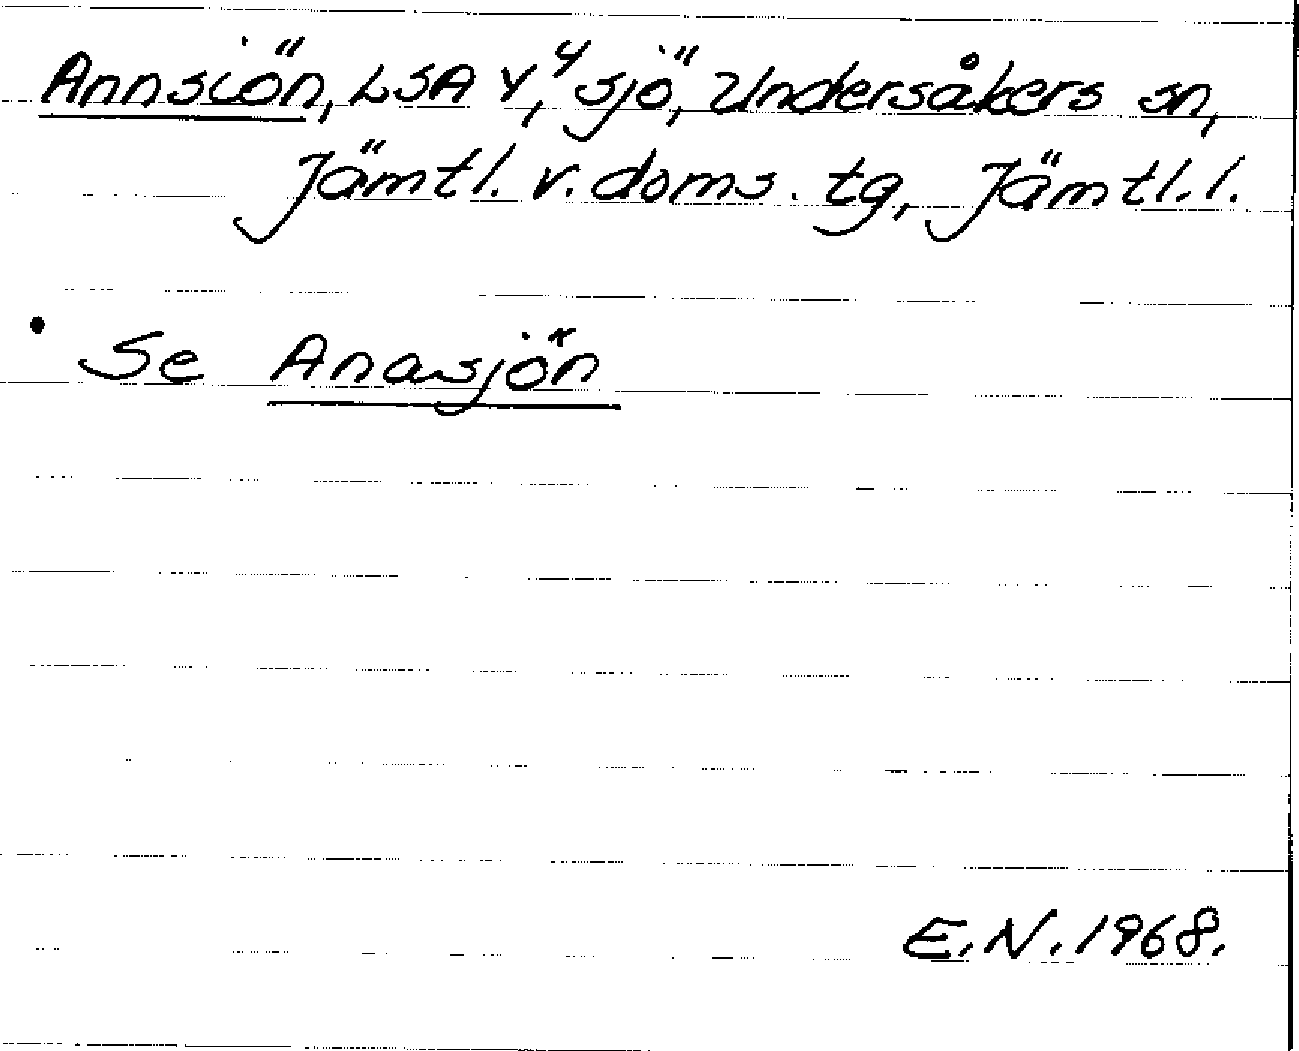 Annsiön, LSA Y, "sjö", Undersåkers sn,
Jämtl. v. doms. tg, Jämtl. l.
Se Anasjön
E.N. 1968.